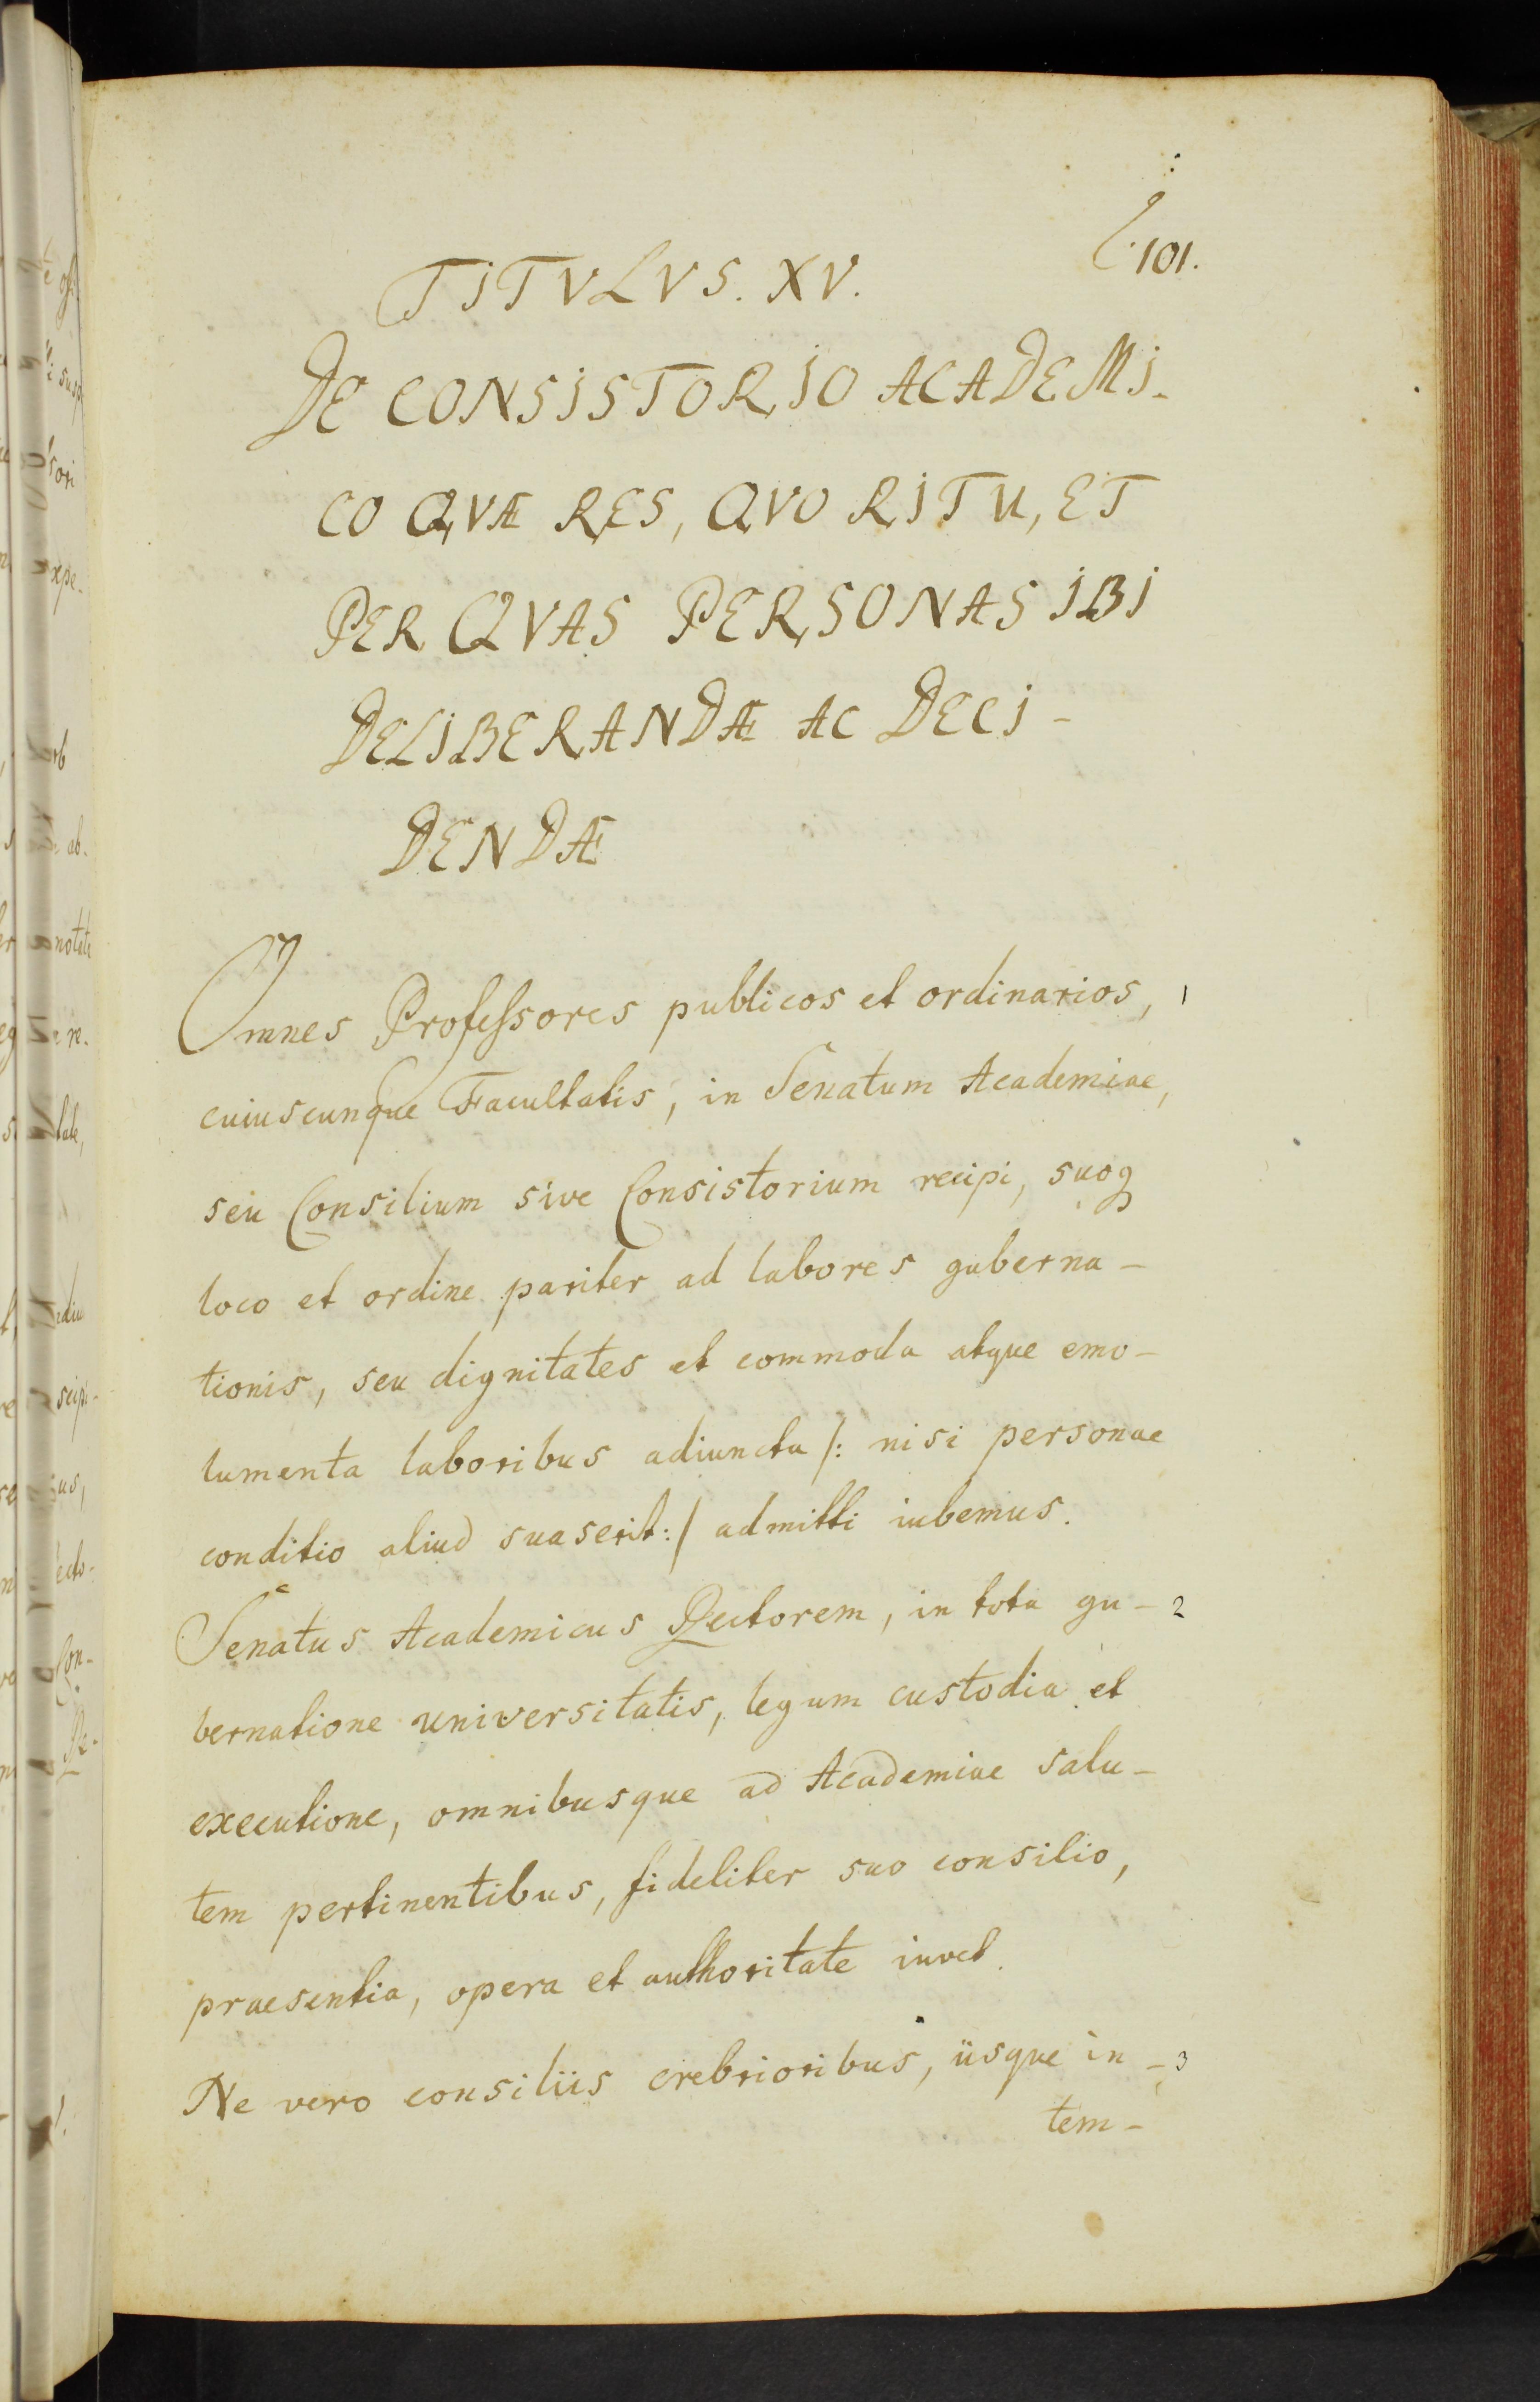 101.
TITVLVS. XV.
DE CONSISTORIO ACADEMI-
CO QVÆ RES, QVO RITU, ET
PER QVAS PERSONAS IBI
DELIBERANDÆ AC DECI-
DENDÆ
Omnes Professores publicos et ordinarios, 1
cuiuscunque Facultatis, in Senatum Academiae,
seu Consilium sive Consistorium recipi, suoq
loco et ordine pariter ad labores guberna-
tionis, seu dignitates et commoda atque emo-
lumenta laboribus adiuncta /: nisi personae
conditio aliud suaserit: / admitti iubemus.
Senatus Academicus Rectorem, in tota gu- 2
bernatione universitatis, legum custodia et
executione, omnibusque ad Academiae salu-
tem pertinentibus, fideliter suo consilio,
praesentia, opera et authoritate iuvet.
Ne vero consiliis crebrioribus, iisque in- 3
tem-